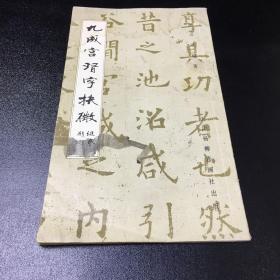 享其功者也然
昔之池沼咸引
谷澗宮城之内
九成宫習字抉微